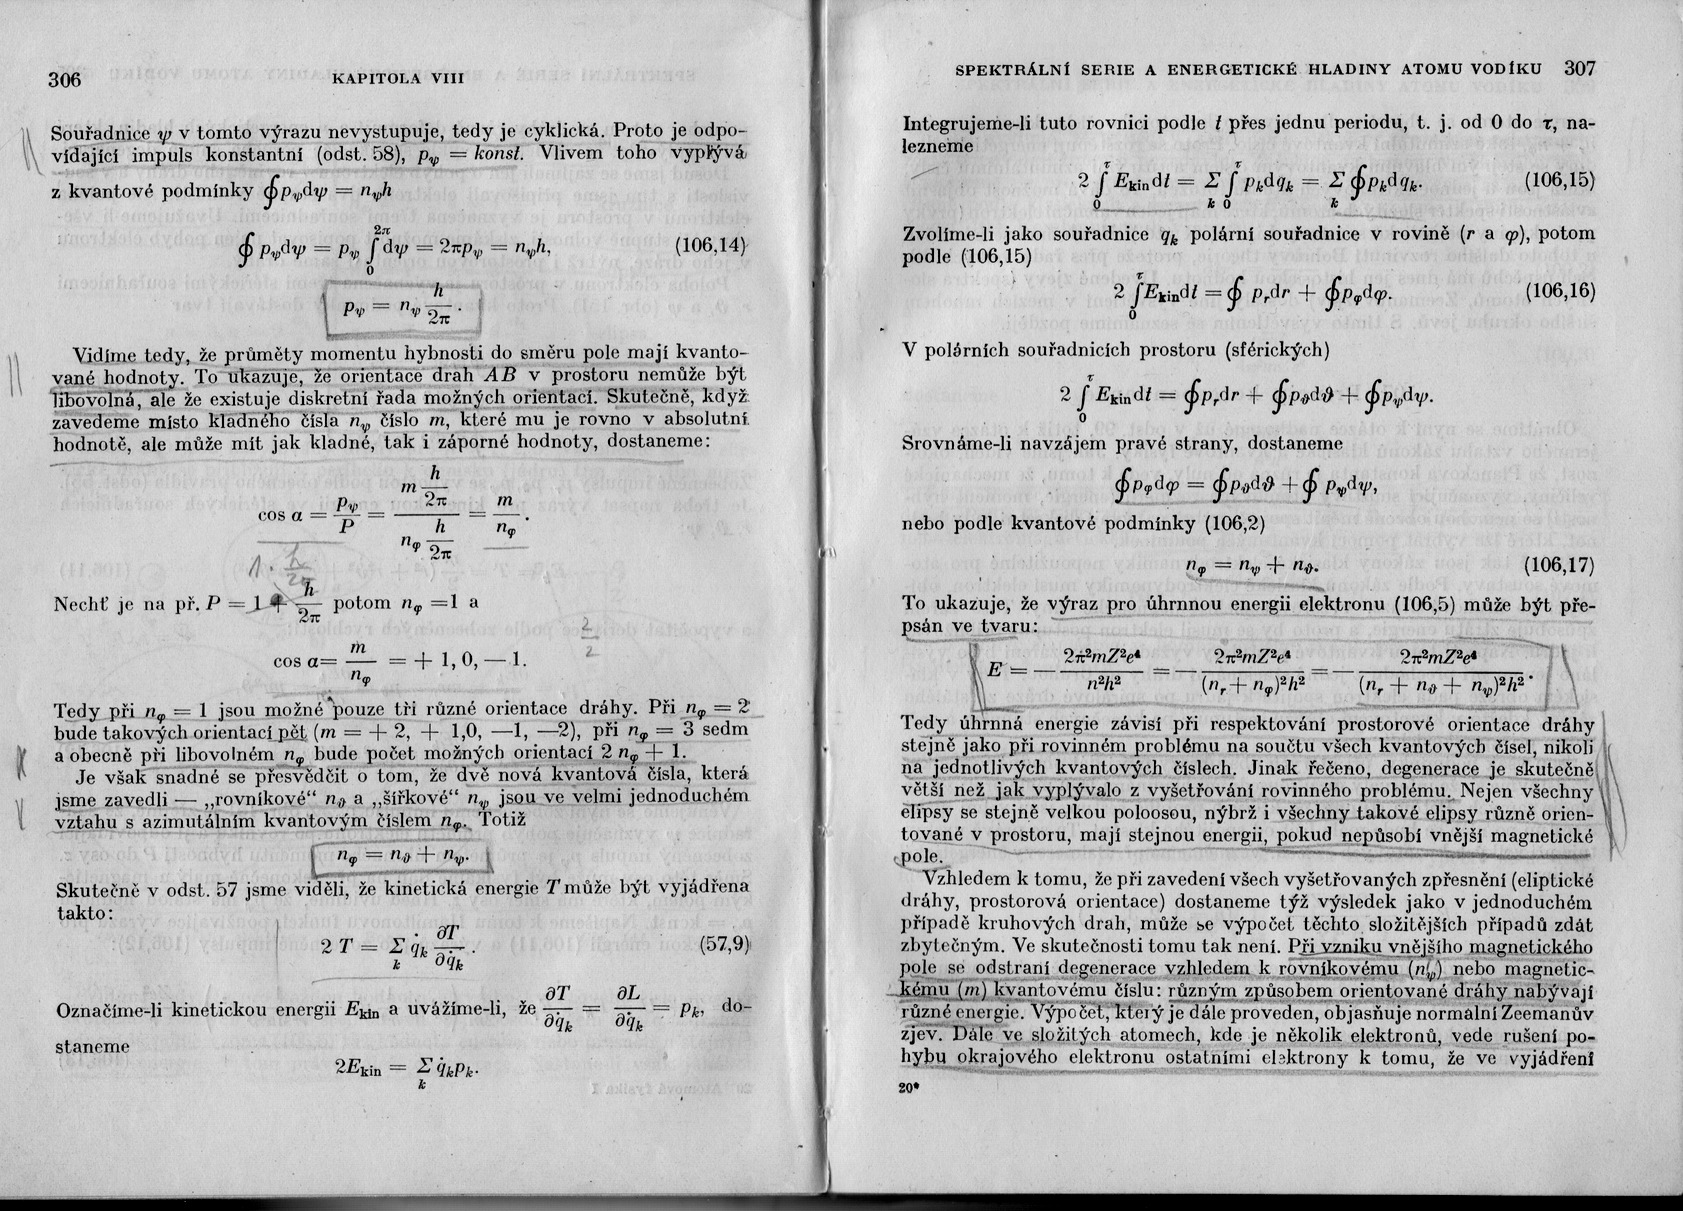 306 KAPITOLA VIII
Souřadnice ψ v tomto výrazu nevystupuje, tedy je cyklická. Proto je odpo-
vídající impuls konstantní (odst. 58), pψ = konst. Vlivem toho vyplývá
z kvantové podmínky ∮pψdψ = nψh
∮ pψdψ = pψ ∫₀^{2π} dψ = 2πpψ = nψh, (106,14)
pψ = nψ h/2π .
Vidíme tedy, že průměty momentu hybnosti do směru pole mají kvanto-
vané hodnoty. To ukazuje, že orientace drah AB v prostoru nemůže být
libovolná, ale že existuje diskretní řada možných orientací. Skutečně, když
zavedeme místo kladného čísla nψ číslo m, které mu je rovno v absolutní
hodnotě, ale může mít jak kladné, tak i záporné hodnoty, dostaneme:
cos α = pψ/P = (m h/2π)/(nφ h/2π) = m/nφ .
1 · h/2π
Nechť je na př. P = 1 + h/2π potom nφ =1 a
2/2
cos α= m/nφ = + 1, 0, — 1.
Tedy při nφ = 1 jsou možné pouze tři různé orientace dráhy. Při nφ = 2
bude takových orientací pět (m = + 2, + 1,0, —1, —2), při nφ = 3 sedm
a obecně při libovolném nφ bude počet možných orientací 2 nφ + 1.
Je však snadné se přesvědčit o tom, že dvě nová kvantová čísla, která
jsme zavedli — „rovníkové“ nϑ a „šířkové“ nψ jsou ve velmi jednoduchém
vztahu s azimutálním kvantovým číslem nφ. Totiž
nφ = nϑ + nψ.
Skutečně v odst. 57 jsme viděli, že kinetická energie T může být vyjádřena
takto:
2 T = Σₖ q̇ₖ ∂T/∂q̇ₖ . (57,9)
Označíme-li kinetickou energii Ekin a uvážíme-li, že ∂T/∂q̇ₖ = ∂L/∂q̇ₖ = pₖ, do-
staneme
2Ekin = Σₖ q̇ₖpₖ.
SPEKTRÁLNÍ SERIE A ENERGETICKÉ HLADINY ATOMU VODÍKU 307
Integrujeme-li tuto rovnici podle t přes jednu periodu, t. j. od 0 do τ, na-
lezneme
2 ∫₀^τ Ekindt = Σₖ ∫₀^τ pₖdqₖ = Σₖ ∮pₖdqₖ. (106,15)
Zvolíme-li jako souřadnice qₖ polární souřadnice v rovině (r a φ), potom
podle (106,15)
2 ∫₀^τ Ekindt = ∮ pᵣdr + ∮pφdφ. (106,16)
V polárních souřadnicích prostoru (sférických)
2 ∫₀^τ Ekindt = ∮pᵣdr + ∮pϑdϑ + ∮pψdψ.
Srovnáme-li navzájem pravé strany, dostaneme
∮pφdφ = ∮pϑdϑ + ∮ pψdψ,
nebo podle kvantové podmínky (106,2)
nφ = nψ + nϑ. (106,17)
To ukazuje, že výraz pro úhrnnou energii elektronu (106,5) může být pře-
psán ve tvaru:
E = — 2π²mZ²e⁴/n²h² = — 2π²mZ²e⁴/(nᵣ + nφ)²h² = — 2π²mZ²e⁴/(nᵣ + nϑ + nψ)²h² .
Tedy úhrnná energie závisí při respektování prostorové orientace dráhy
stejně jako při rovinném problému na součtu všech kvantových čísel, nikoli
na jednotlivých kvantových číslech. Jinak řečeno, degenerace je skutečně
větší než jak vyplývalo z vyšetřování rovinného problému. Nejen všechny
elipsy se stejně velkou poloosou, nýbrž i všechny takové elipsy různě orien-
tované v prostoru, mají stejnou energii, pokud nepůsobí vnější magnetické
pole.
Vzhledem k tomu, že při zavedení všech vyšetřovaných zpřesnění (eliptické
dráhy, prostorová orientace) dostaneme týž výsledek jako v jednoduchém
případě kruhových drah, může se výpočet těchto složitějších případů zdát
zbytečným. Ve skutečnosti tomu tak není. Při vzniku vnějšího magnetického
pole se odstraní degenerace vzhledem k rovníkovému (nψ) nebo magnetic-
kému (m) kvantovému číslu: různým způsobem orientované dráhy nabývají
různé energie. Výpočet, který je dále proveden, objasňuje normální Zeemanův
zjev. Dále ve složitých atomech, kde je několik elektronů, vede rušení po-
hybu okrajového elektronu ostatními elektrony k tomu, že ve vyjádření
20*